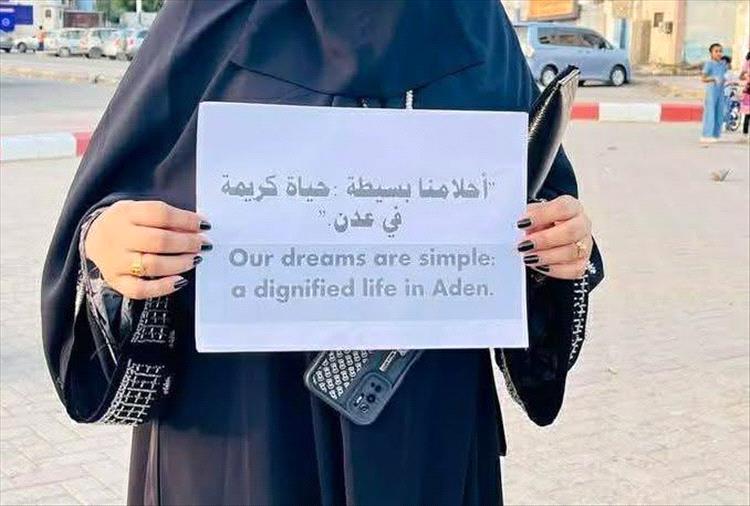 "أحلامنا بسيطة : حياة كريمة
في عدن."
Our dreams are simple:
a dignified life in Aden.